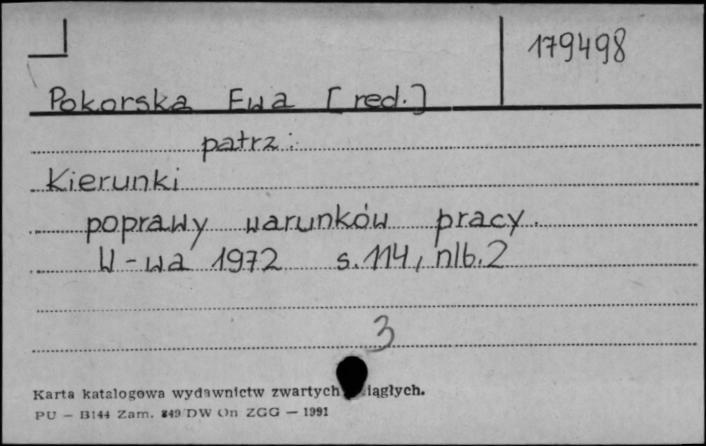 179498
Pokorska Ewa [red.]
patrz:
Kierunki
poprawy warunków pracy.
W-wa 1972 s. 114, nlb. 2
3
Karta katalogowa wydawnictw zwartych iągłych.
PU — B144 Zam. 849 DW On ZGG — 1991